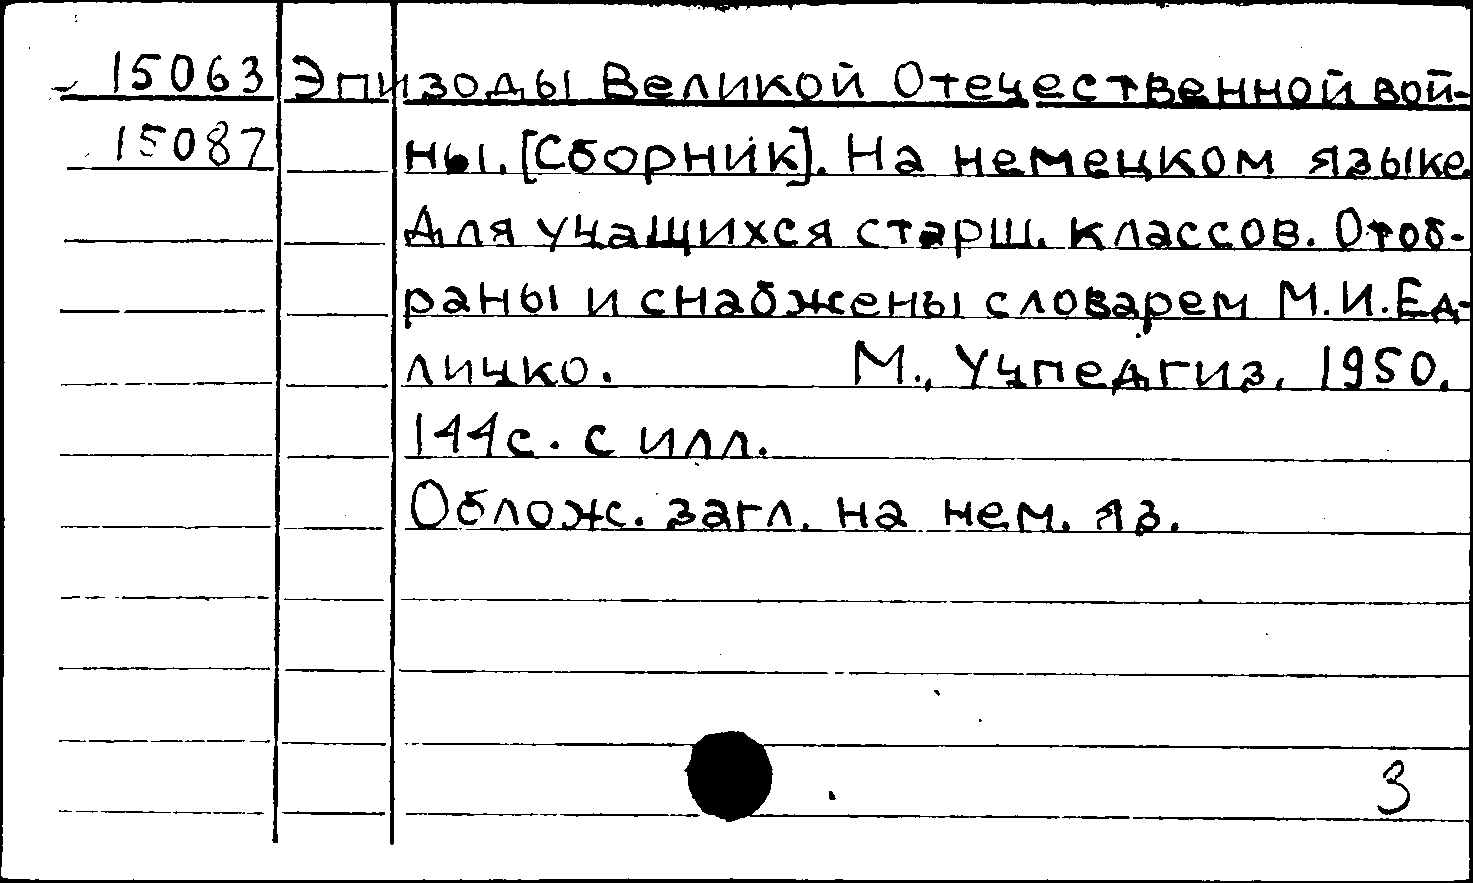 15063 Эпизоды Великой Отечественной вой-
15087 ны. [Сборник]. На немецком языке.
Для учащихся старш. классов. Отоб-
раны и снабжены словарем М.И.Ед-
личко. М., Учпедгиз, 1950.
144с. с илл.
Облож. загл. на нем. яз.
3